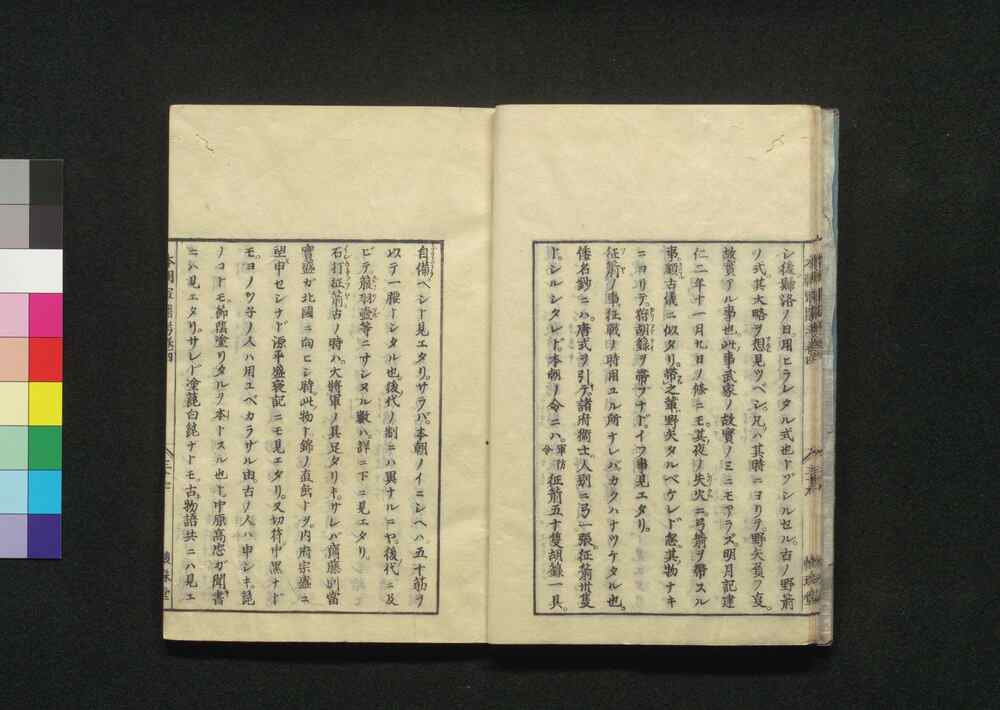 シ後歸洛ノ日。用ヒラレタル式也トゾシルセル。古ノ野箭
ノ式其大略ヲ想見ツベシ。凡ハ其時ニヨリテ。野矢負フ夏。
故實アル事也。此事武家ノ故實ノミニモアラズ明月記建
仁二年十一月九日ノ條ニモ。其夜ノ失火ニ弓箭ヲ帶スル
事。願古儀ニ似タリ。帶之輩野矢タルベケレド怱其物ナキ
ニヨリテ。狩胡籙ヲ帶フナド。イフ事見エタリ。
征箭ノ事。征戰ノ時用ユル所ナレバカクハナヅケタル也。
倭名鈔ニハ。唐式ヲ引テ。諸府衛士人別ニ弓一張。征箭卅隻
ト。シルシタレド。本朝ノ令ニハ。軍防令征箭五十隻胡籙一具。
自備ヘシト見エタリ。サラバ。本朝ノイニシヘハ五十筋ヲ
以テ一腰トシタル也。後代ノ制ニハ異ナルニヤ。後代ニ及
ビテ箙羽壺等ニサシヌル數ハ。詳ニ下ニ見エタリ。
石打征箭古ノ時ハ。大將軍ノ具足タリキ。サレバ齋藤別當
實盛ガ北國ニ向ヒシ時。此物ト錦ノ直垂トヲ。内府宗盛ニ
望申セシナド源平盛衰記ニモ見エタリ。又切符中黒ナド
モ。ヨノツ子ノ人ハ用ユベカラザル由。古ノ人ハ申シキ。箆
ノコトモ。節蔭塗リタルヲ本トスル也ト。中原高忠ガ聞書
ニハ見エタリ。サレド塗箆白箆ナドモ。古物語共ニハ見エ